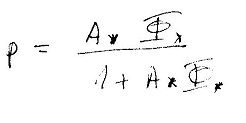 p = A* Φ* / 1 + A* Φ*